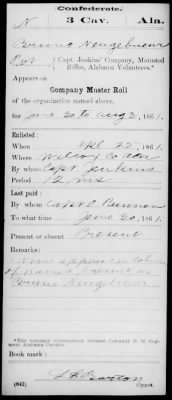 Confederate.
N 3 Cav. Ala.
Bruno Neugebauer
Pvt Capt. Jenkins' Company, Mounted
Rifles, Alabama Volunteers.*
Appears on
Company Muster Roll
of the organization named above,
for June 30 to Aug 31, 1861.
Enlisted:
When 22, 1861.
Where Wilcox
By whom Capt Jenkins
Period 12 ms
Last paid:
By whom Capt
To what time June 30, 1861.
Present or absent Present
Remarks:
Name appears in column
of names present as
Neugebauer
*This company subsequently became Company
Alabama Cavalry.
Book mark:
(642) Copyist.